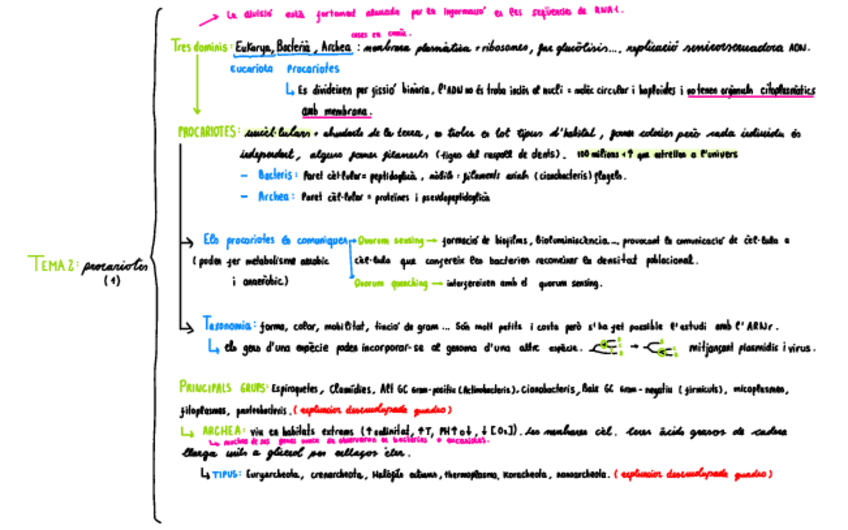 La divisió està fortament afavada per la informació de les seqüències de RNAr.
coses en comú.
Tres dominis: Eukarya, Bacteria, Archea: membrana plasmàtica + ribosomes, fan glucòlisis..., replicació semiconservadora ADN.
eucariota procariotes
Es divideixen per fissió binària, l'ADN no és troba inclòs al nucli = nuclic circular i haploides i no tenen orgànuls citoplasmàtics
amb membrana.
PROCARIOTES: unicel·lulars + abundants de la terra, es troben a tot tipus d'hàbitat, formen colonies però cada individu és
independent, alguns formen filaments (tigres del raspall de dents). 100 milions + ↑ que estrelles a l'univers
- Bacteris: Paret cèl·lular = peptidoglicà, mòbils: filaments axials (cianobacteris) flagels.
- Archea: Paret cèl·lular = proteïnes i pseudopeptidoglicà
TEMA 2: procariotes
(1)
Els procariotes és comuniquen → Quorum sensing → formació de biofilms, bioluminiscència..., provocant la comunicació de cèl·lula a
(poden fer metabolisme aerobic cèl·lula que confereix les bacterien reconeixer la densitat poblacional.
i anaeròbic) Quorum quenching → interfereixen amb el quorum sensing.
Taxonomia: forma, color, mobilitat, tinció de gram... Són molt petits i costa però s'ha fet possible l'estudi amb l'ARNr.
els gens d'una espècie poden incorporar-se al genoma d'una altre espècie. → mitjançant plasmidis i virus.
PRINCIPALS GRUPS: Espiroquetes, Clamídies, Alt GC Gram-positiu (Actinobacteris), Cianobacteris, Baix GC Gram-negatiu (firmicuts), micoplasmes,
fitoplasmes, proteobacteris. (explicacion desenvolupada quadro)
ARCHEA: viu en hàbitats extrems (↑ salinitat, ↑T, PH ↑ o ↓, ↓ [O₂]). Les membranes cèl. tenen àcids grasos de cadena
muchos de sus genes nunca se observaron en bacterias o eucariotas.
llarga units a glicerol per enllaços èter.
TIPUS: Euryarcheota, crenarcheota, Halòfits extrems, thermoplasma, Korarcheota, nanoarcheota. (explicacion desenvolupada quadro)